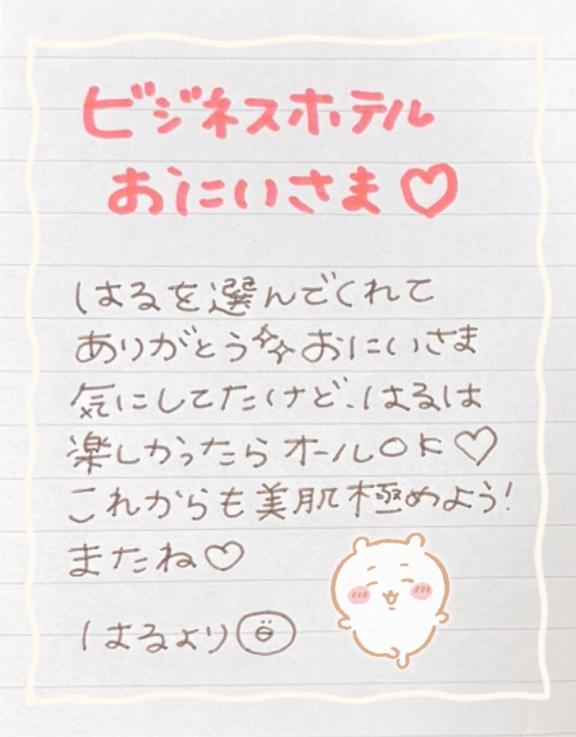 ビジネスホテル
おにいさま♡
はるを選んでくれて
ありがとう✨おにいさま
気にしてたけど、はるは
楽しかったらオールOK♡
これからも美肌極めよう!
またね♡
はるより